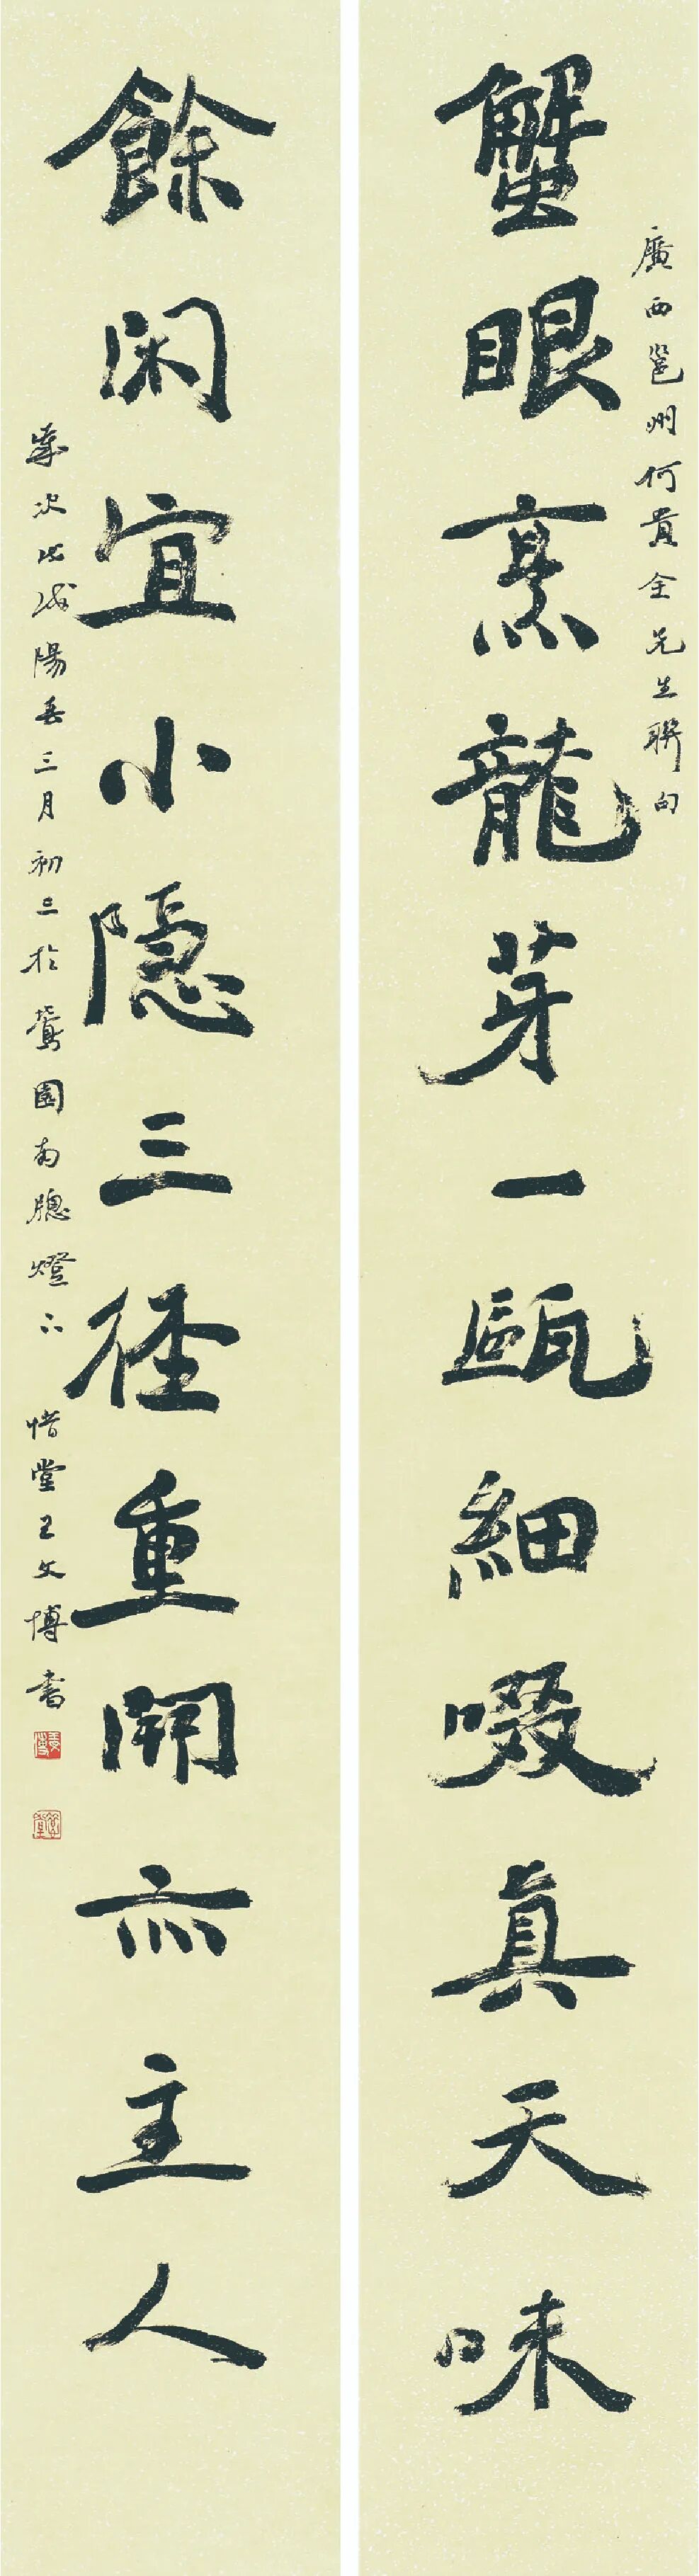 廣西邕州何貴全先生聯句
蟹眼烹龍芽一甌細啜真天味
餘閑宜小隱三徑重開亦主人
歲次戊戌陽春三月初三於園南牕燈下 惜堂王文博書